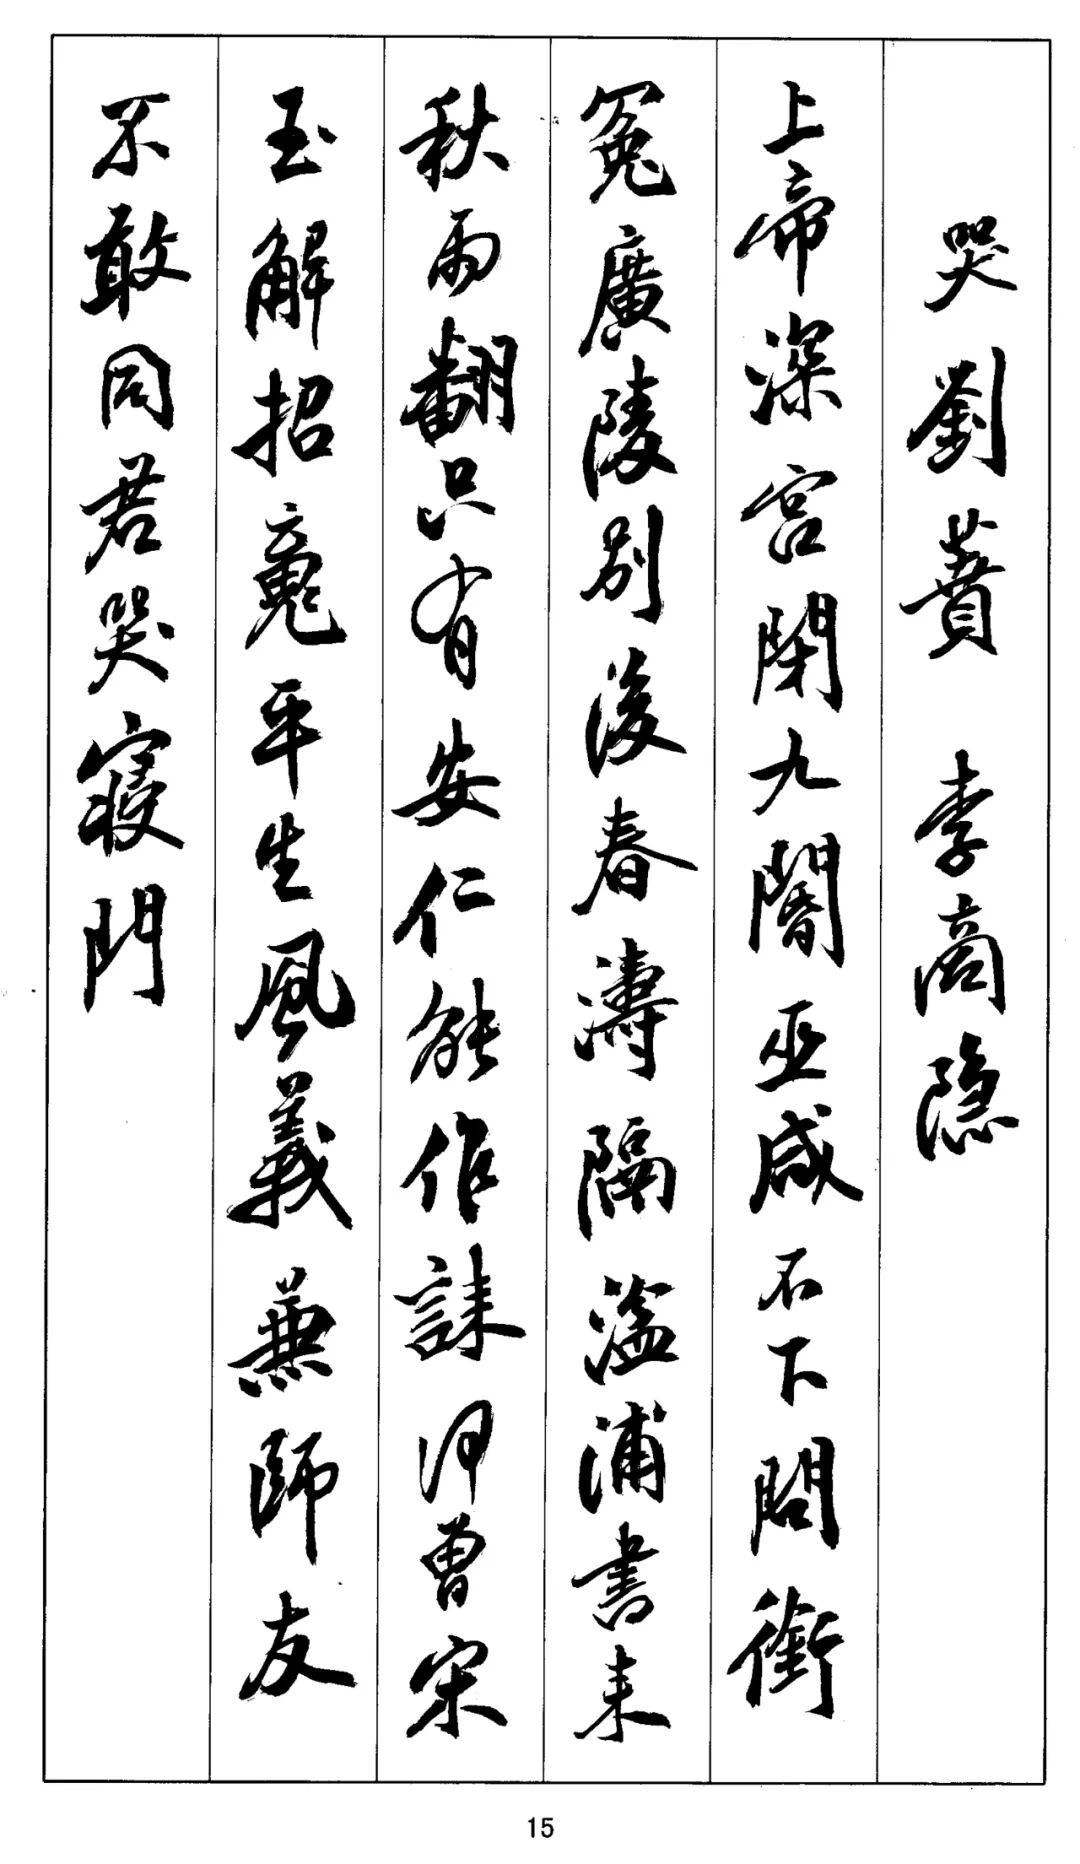 哭劉蕡 李商隐
上帝深宮閉九閽巫咸不下問銜
冤廣陵別後春濤隔湓浦書來
秋雨翻只有安仁能作誄何曾宋
玉解招魂平生風義兼師友
不敢同君哭寢門
15